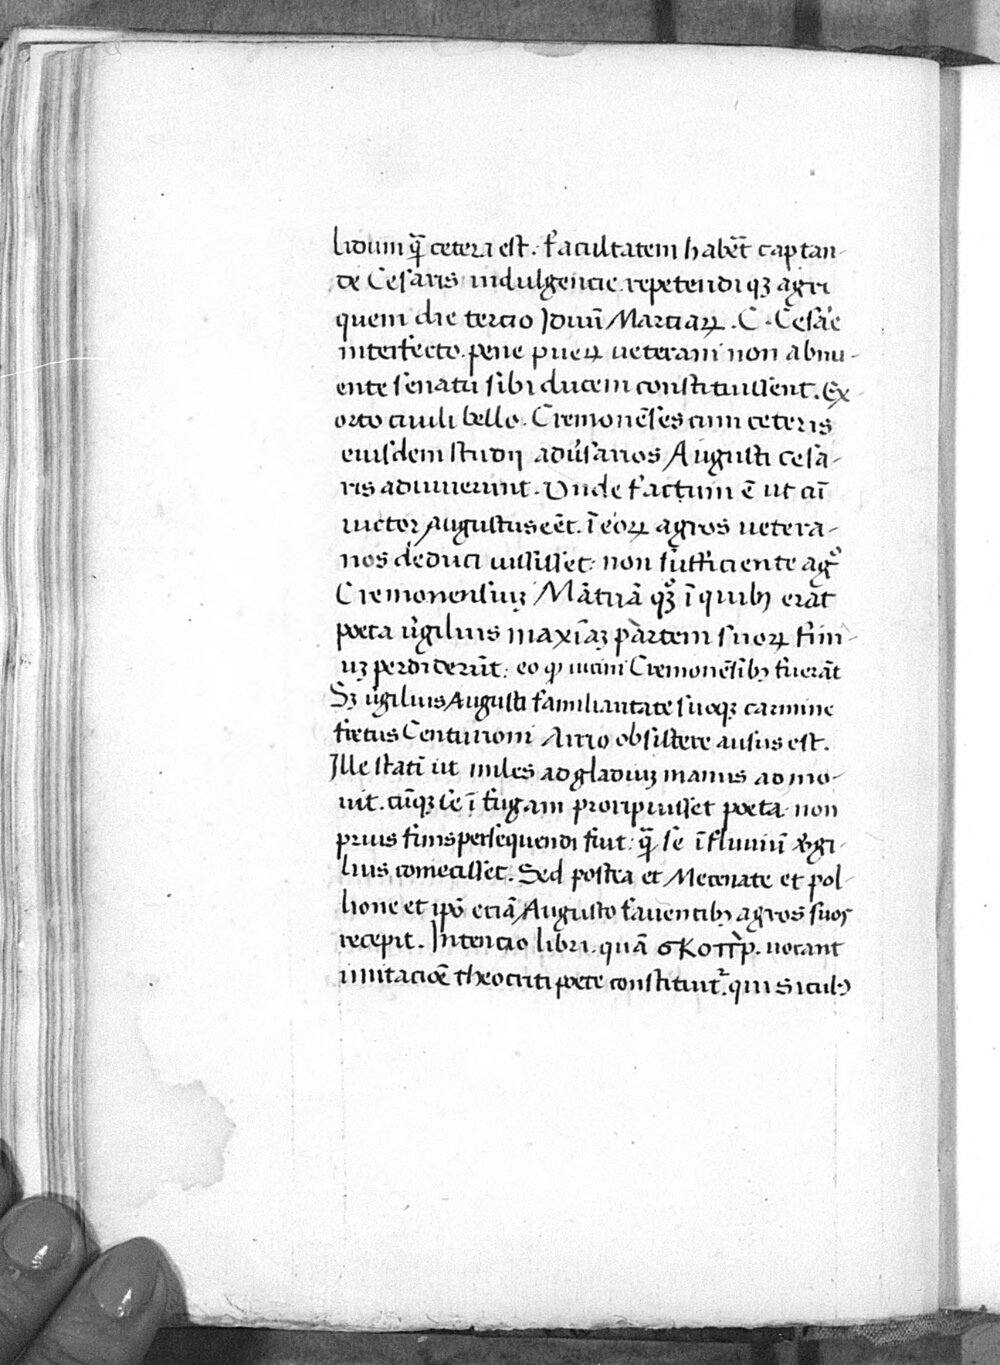 lidum q̄ȝ cetera est. facultatem habēt captan-
di Cesaris indulgencie repetendi qȝ agri
quem die tercio Iduū Marciaꝝ. C. Cesa'e
interfecto. pene pueꝝ ueterani non abnu-
ente senatu sibi ducem constituissent. Ex-
orto ciuili bello. Cremonēses cum ceteris
eiusdem studij adu'sarios Augusti cesa-
ris adiuuerunt. Vnde factum ē ut cū
uictor Augustus eēt. ī eoꝝ agros uetera-
nos deduci iussisset: non sufficiente agº
Cremonensiuȝ Mātuā qºȝ ī quibꝰ erāt
poeta u'giliuis maxīaȝ partem suoꝝ fini-
uȝ perdiderūt: eo ꝙ uicini Cremonēsibȝ fuerāt
Sȝ u'gilius Augusti familiaritate suoqȝ carmine
fretus Centurioni Arrio obsistere ausus est.
Ille statī ut miles ad gladiuȝ manus ad mo-
uit. cūqȝ se ī fugam proripuisset poeta non
prius finis persequendi fuit: q̄ se ī fluuiū u'gi-
lius coniecisset. Sed postea et Mecenate et pol-
lione et ipō eciā Augusto fauentibȝ agros suos
recepit. Intencio libri. quā σκοπр. uocant
imitaciōe theocriti poete constituit'. qui Siculꝰ